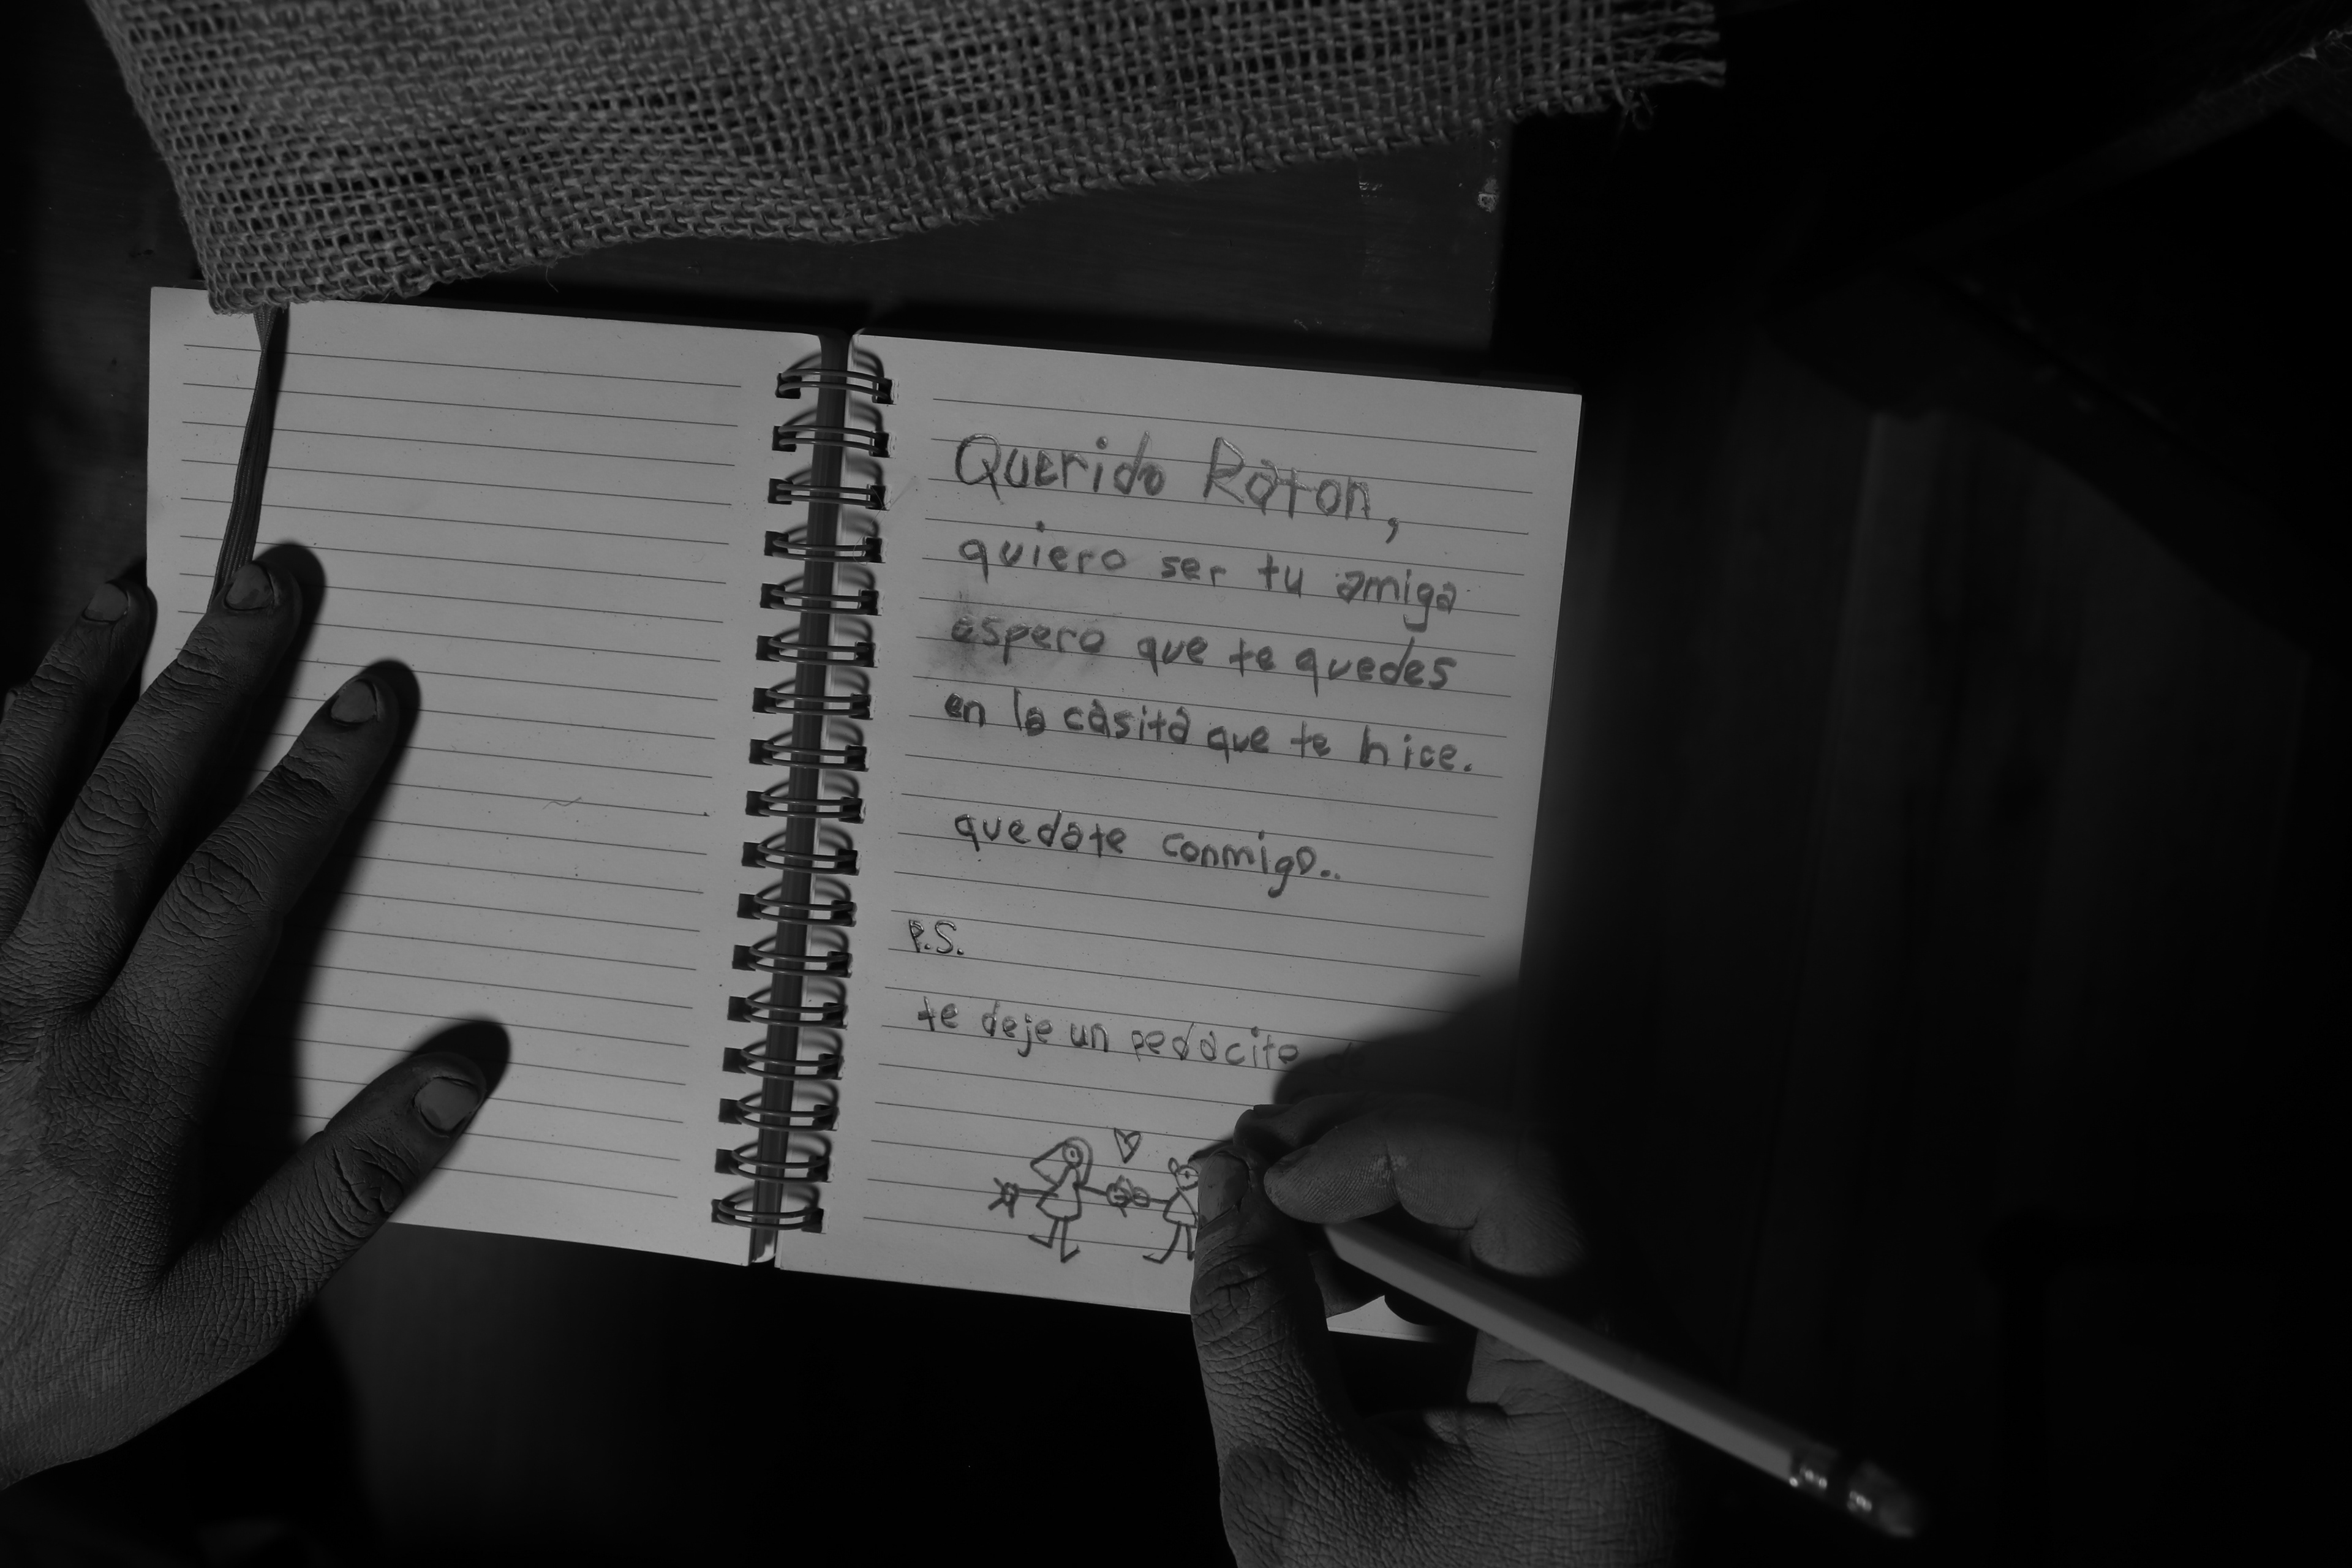 Querido Raton,
quiero ser tu amiga
espero que te quedes
en la casita que te hice.
quedate conmigo..
P.S.
te deje un pedacito